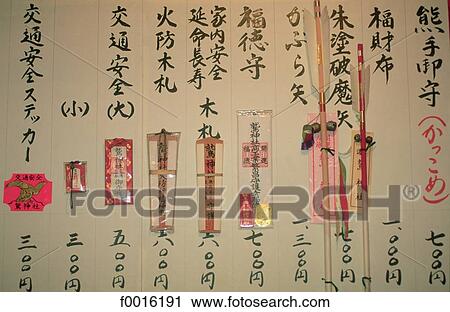 熊手御守
(かっこめ)
七〇〇円
福財布
一、〇〇〇円
朱塗破魔矢
一、七〇〇円
かぶら矢
一、三〇〇円
福徳守
七〇〇円
家内安全
延命長寿
木札
六〇〇円
火防木札
六〇〇円
交通安全(大)
五〇〇円
(小)
三〇〇円
交通安全ステッカー
交通安全
鷲神社
三〇〇円
FOTOSEARCH®
f0016191 www.fotosearch.com